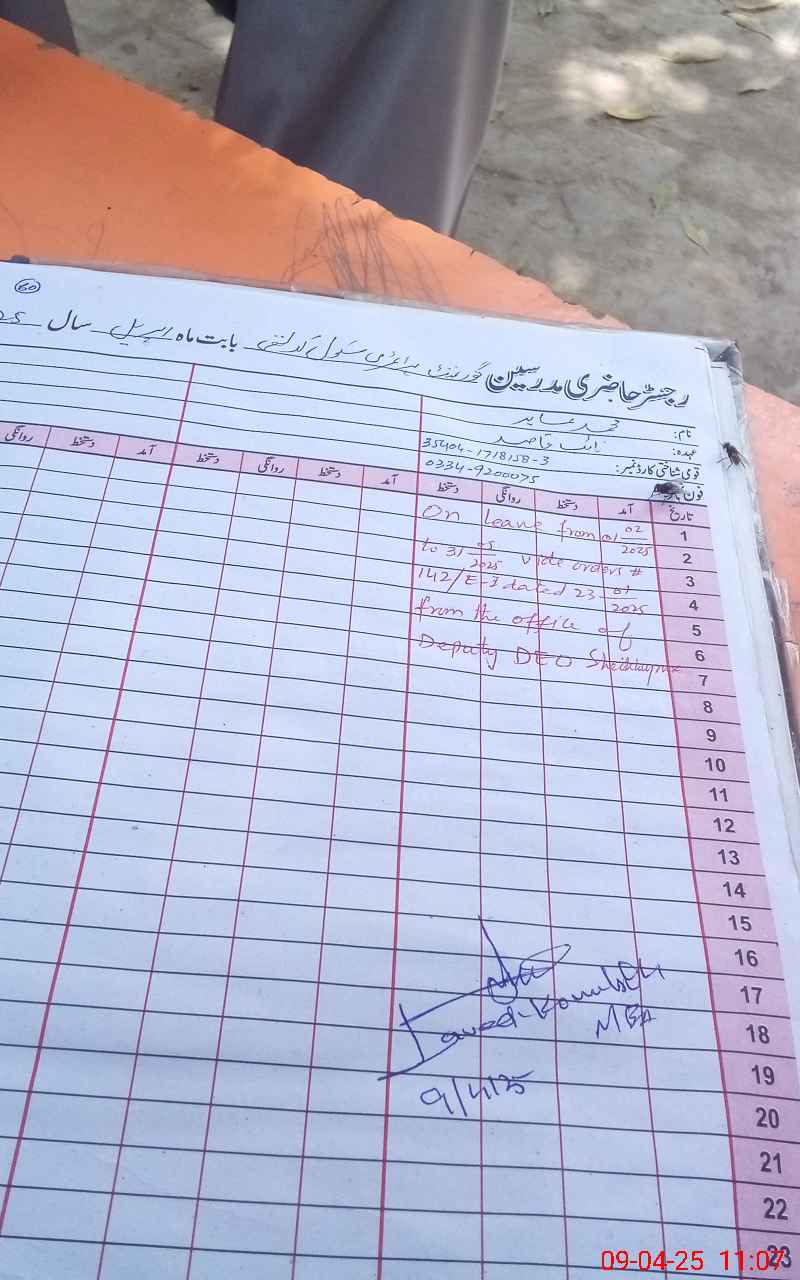 60
رجسٹر حاضری مدرسین گورنمنٹ پرائمری سکول بابت ماہ اپریل سال
نام: محمد عابد
عہدہ: نائب قاصد
قومی شناختی کارڈ نمبر: 35404-1718158-3
فون نمبر 0334-9200075
تاریخ آمد دستخط روانگی دستخط آمد دستخط روانگی دستخط آمد دستخط روانگی
1
2
3
4
5
6
7
8
9
10
11
12
13
14
15
16
17
18
19
20
21
22
23
On leave from 01 02/2025
to 31 05/2025 vide orders #
142/E-I dated 23 01/2025
from the office of
Deputy DEO
Javed
MEA
9/4/25
09-04-25 11:07